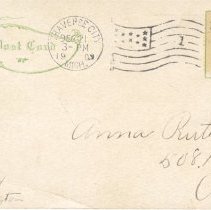 Post Card
TRAVERSE CITY
DEC
3-PM
19 09
MICH.
1
Anna Rut
508